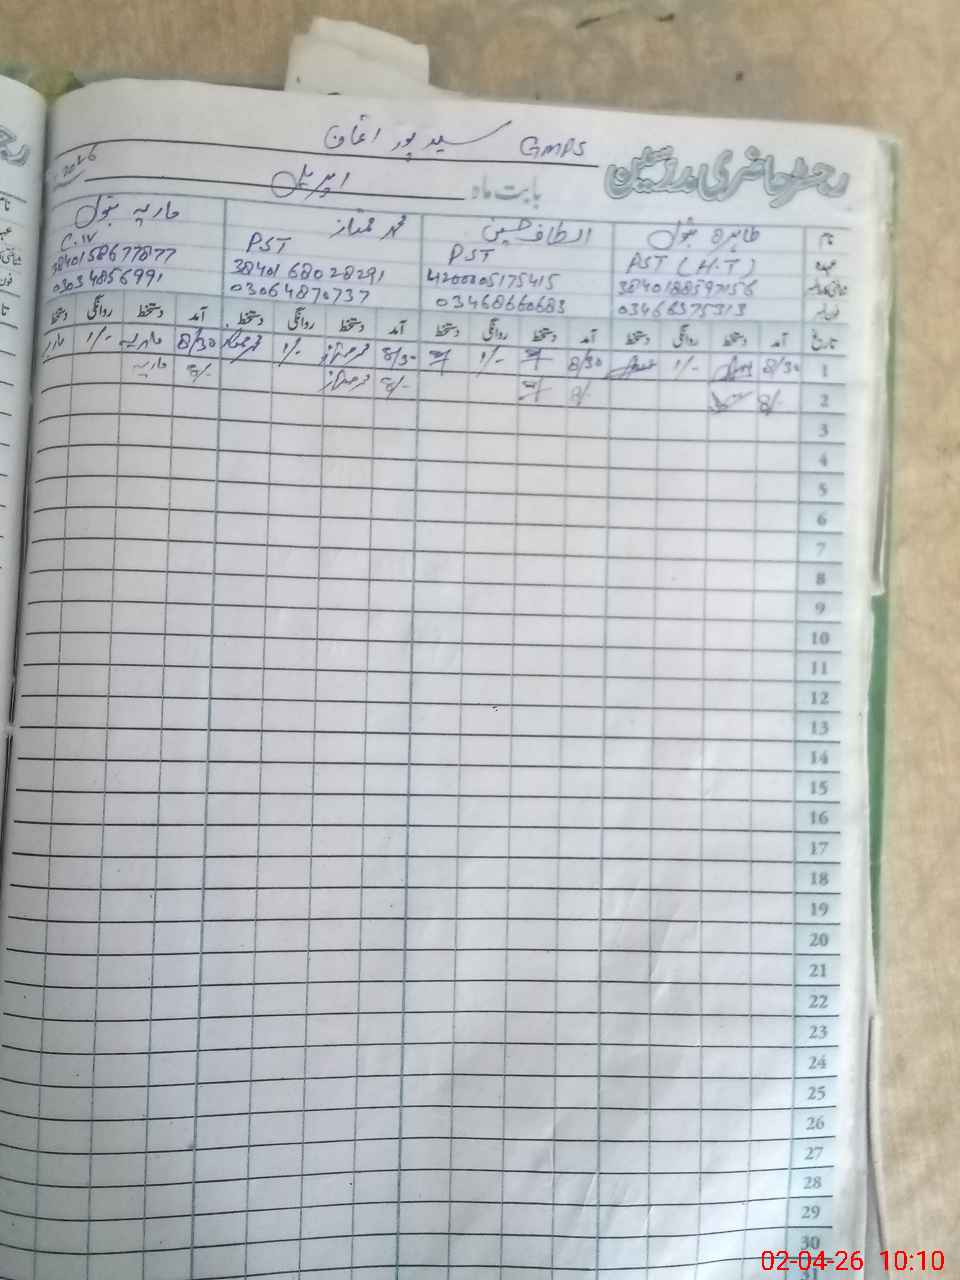 رجسٹر حاضری مدرسین GMPS سید پور اعوان
بابت ماہ اپریل 2026
نام طاہرہ بتول الطاف حسین محمد ممتاز ماریہ بتول
عہدہ PST (H.T) PST PST C.IV
3840188597156 4200005175415 3840168028291 3840158677877
03466375313 03468660683 03064870737 03034856991
تاریخ آمد دستخط روانگی دستخط آمد دستخط روانگی دستخط آمد دستخط روانگی دستخط آمد دستخط روانگی دستخط
1 8/30 1/- 8/30 1/- 8/30 1/- 8/30 ماریہ 1/- ماریہ
2 8/- 8/- 8/- 8/- ماریہ
3
4
5
6
7
8
9
10
11
12
13
14
15
16
17
18
19
20
21
22
23
24
25
26
27
28
29
30
31
02-04-26 10:10